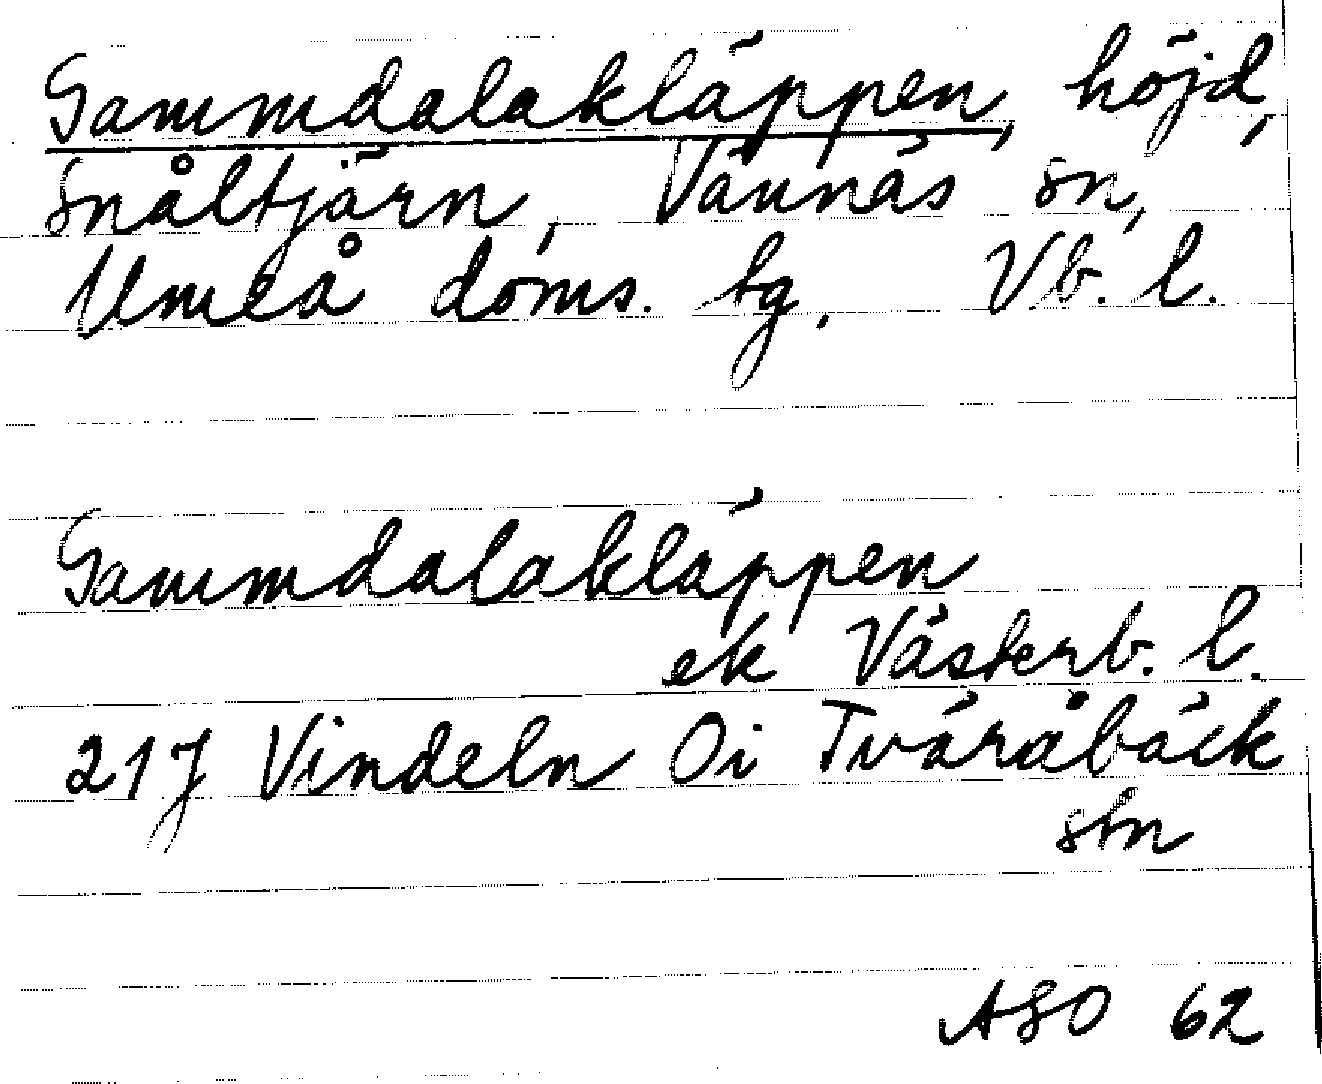 Gammdalakläppen, höjd,
Snåltjärn, Vännäs sn,
Umeå doms. tg. Vb. l.
Gammdalakläppen
ek Västerb. l.
21J Vindeln Oi Tväråbäck
stn
ASO 62